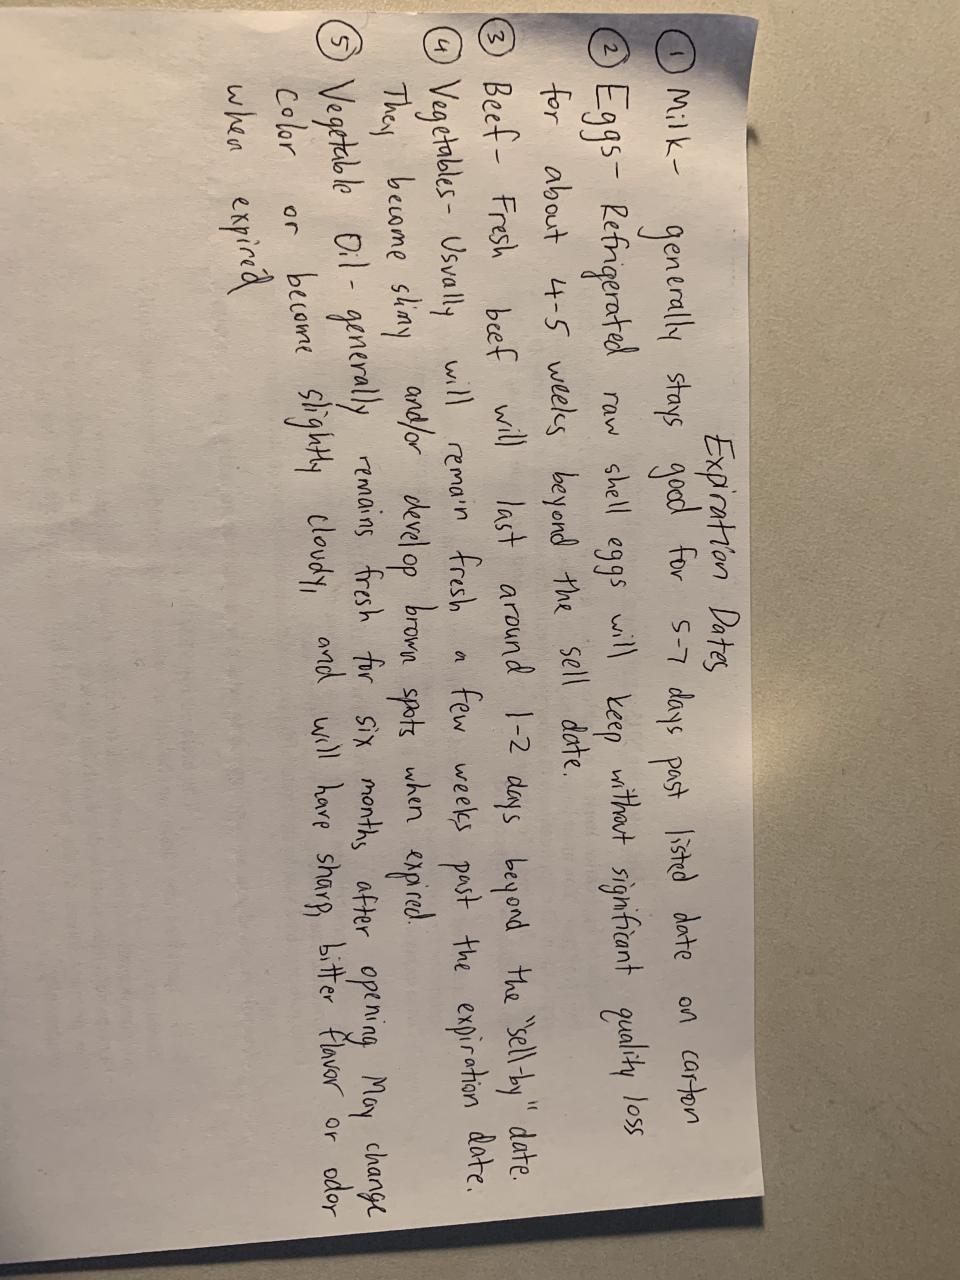 Expiration Dates
① Milk- generally stays good for 5-7 days past listed date on carton
② Eggs- Refrigerated raw shell eggs will keep without significant quality loss
for about 4-5 weeks beyond the sell date.
③ Beef- Fresh beef will last around 1-2 days beyond the "sell-by" date.
④ Vegetables- Usually will remain fresh a few weeks past the expiration date.
They become slimy and/or develop brown spots when expired.
⑤ Vegetable Oil- generally remains fresh for six months after opening May change
color or become slightly cloudy, and will have sharp, bitter flavor or odor
when expired